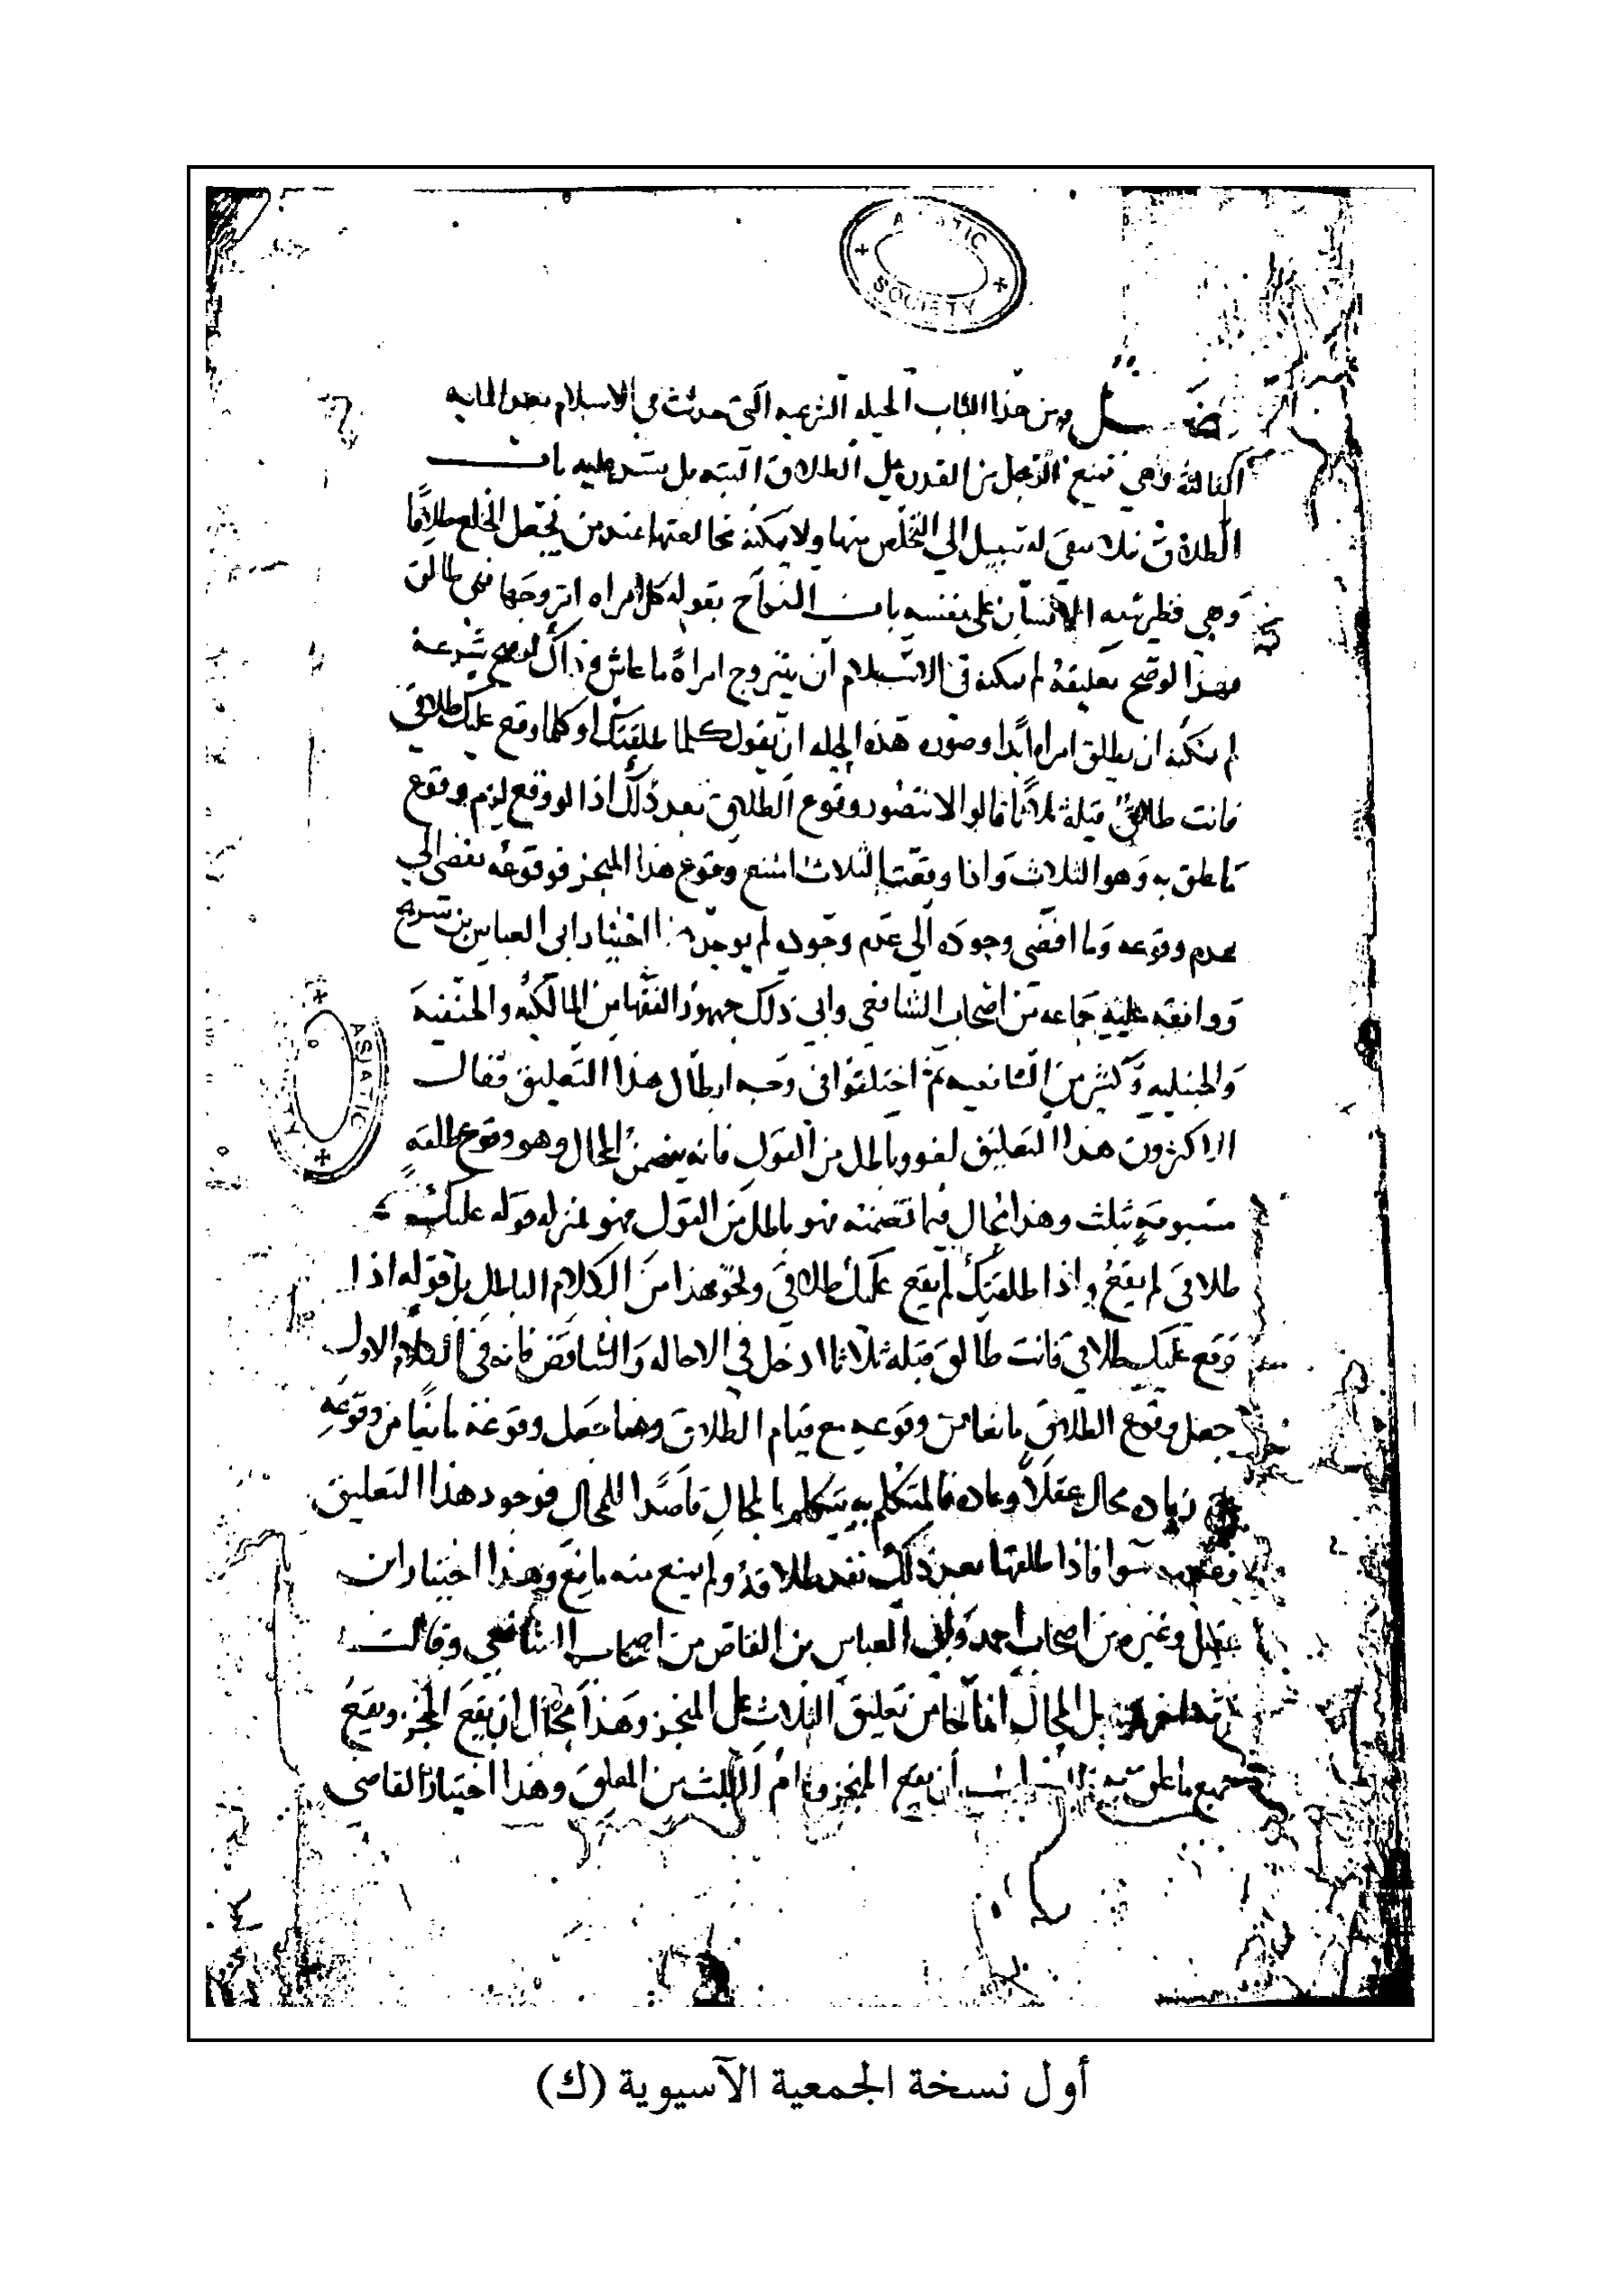 ASIATIC SOCIETY
فصل ومن هذا الباب الحيلة السريجية التي حدثت في الاسلام بعد المايه
الثالثة وهي تمنع الرجل من القدره على الطلاق البته بل تسد عليه باب
الطلاق فلا يبقى له سبيل الي التخلص منها ولا يمكنه مخالعتها عند من يجعل الخلع طلاقا
وهي نظير سده الانسان على نفسه باب النكاح بقوله كل امراه اتزوجها فهي طالق
فهذا لو صح تعليقه لم يمكنه في الاسلام ان يتزوج امراة ما عاش وذاك لو صح شرعه
لم يمكنه ان يطلق امراه ابدا وصوره هذه الحيله ان يقول كلما طلقتك او كلما وقع عليك طلاقي
فانت طالق قبله ثلاثا قالوا لا نتصور وقوع الطلاق بعد ذلك اذ لو وقع لزم وقوع
ما علق به وهو الثلاث واذا وقعت الثلاث امتنع وقوع هذا المنجز فوقوعه يفضي الي
عدم وقوعه وما افضى وجوده الي عدم وجوده لم يوجد هذا اختيار ابي العباس بن سريج
ووافقه عليه جماعه من اصحاب الشافعي وابي ذلك جمهور الفقها من المالكيه والحنفيه
والحنبليه وكثير من الشافعيه ثم اختلفوا في وجه ابطال هذا التعليق فقال
الاكثرون هذا التعليق لغو وباطل من القول فانه يتضمن المحال وهو وقوع طلقه
مسبوقه بثلث وهذا محال فما تضمنه فهو باطل من القول فهو بمنزله قوله عليك
طلاقي لم يقع واذا طلقتك لم يقع عليك طلاقي ونحو هذا من الكلام الباطل بل قوله اذا
وقع عليك طلاقي فانت طالق قبله ثلاثا ادخل في الاحاله والتناقض فانه في الكلام الاول
جعل وقوع الطلاق مانعا من وقوعه مع قيام الطلاق وهنا جعل وقوعه مانعا من وقوعه
زمان محال عقلا وعاده فالمتكلم به يتكلم بالمحال قاصدا للمحال فوجود هذا التعليق
وعدمه سوا فاذا طلقها بعد ذلك نفد طلاقه ولم يمنع منه مانع وهذا اختيار ابن
عقيل وغيره من اصحاب احمد وابي العباس بن القاص من اصحاب الشافعي وقالت
بل المحال انما جا من تعليق الثلاث على المنجز وهذا محال ان يقع المنجز ويقع
جميع ما علق به ان يقع المنجز وتمام الثلث من المعلق وهذا اختيار القاضي
ASIATIC
أول نسخة الجمعية الآسيوية (ك)